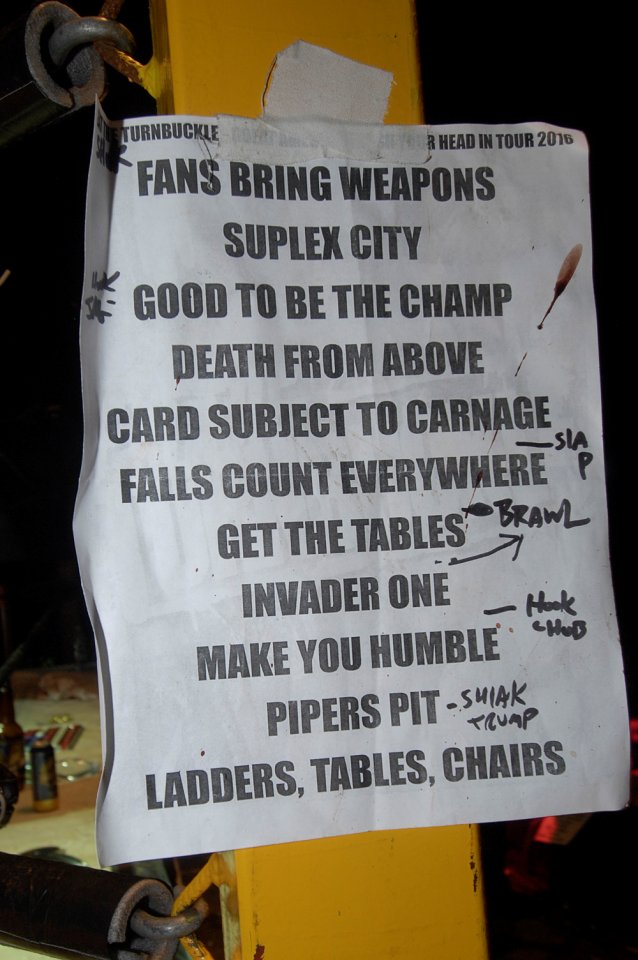 TURNBUCKLE HEAD IN TOUR 2016
FANS BRING WEAPONS
SUPLEX CITY
GOOD TO BE THE CHAMP
DEATH FROM ABOVE
CARD SUBJECT TO CARNAGE
— SLAP
FALLS COUNT EVERYWHERE
GET THE TABLES
BRAWL
INVADER ONE
— Hook
MAKE YOU HUMBLE
PIPERS PIT
- SHIAK
TRUMP
LADDERS, TABLES, CHAIRS